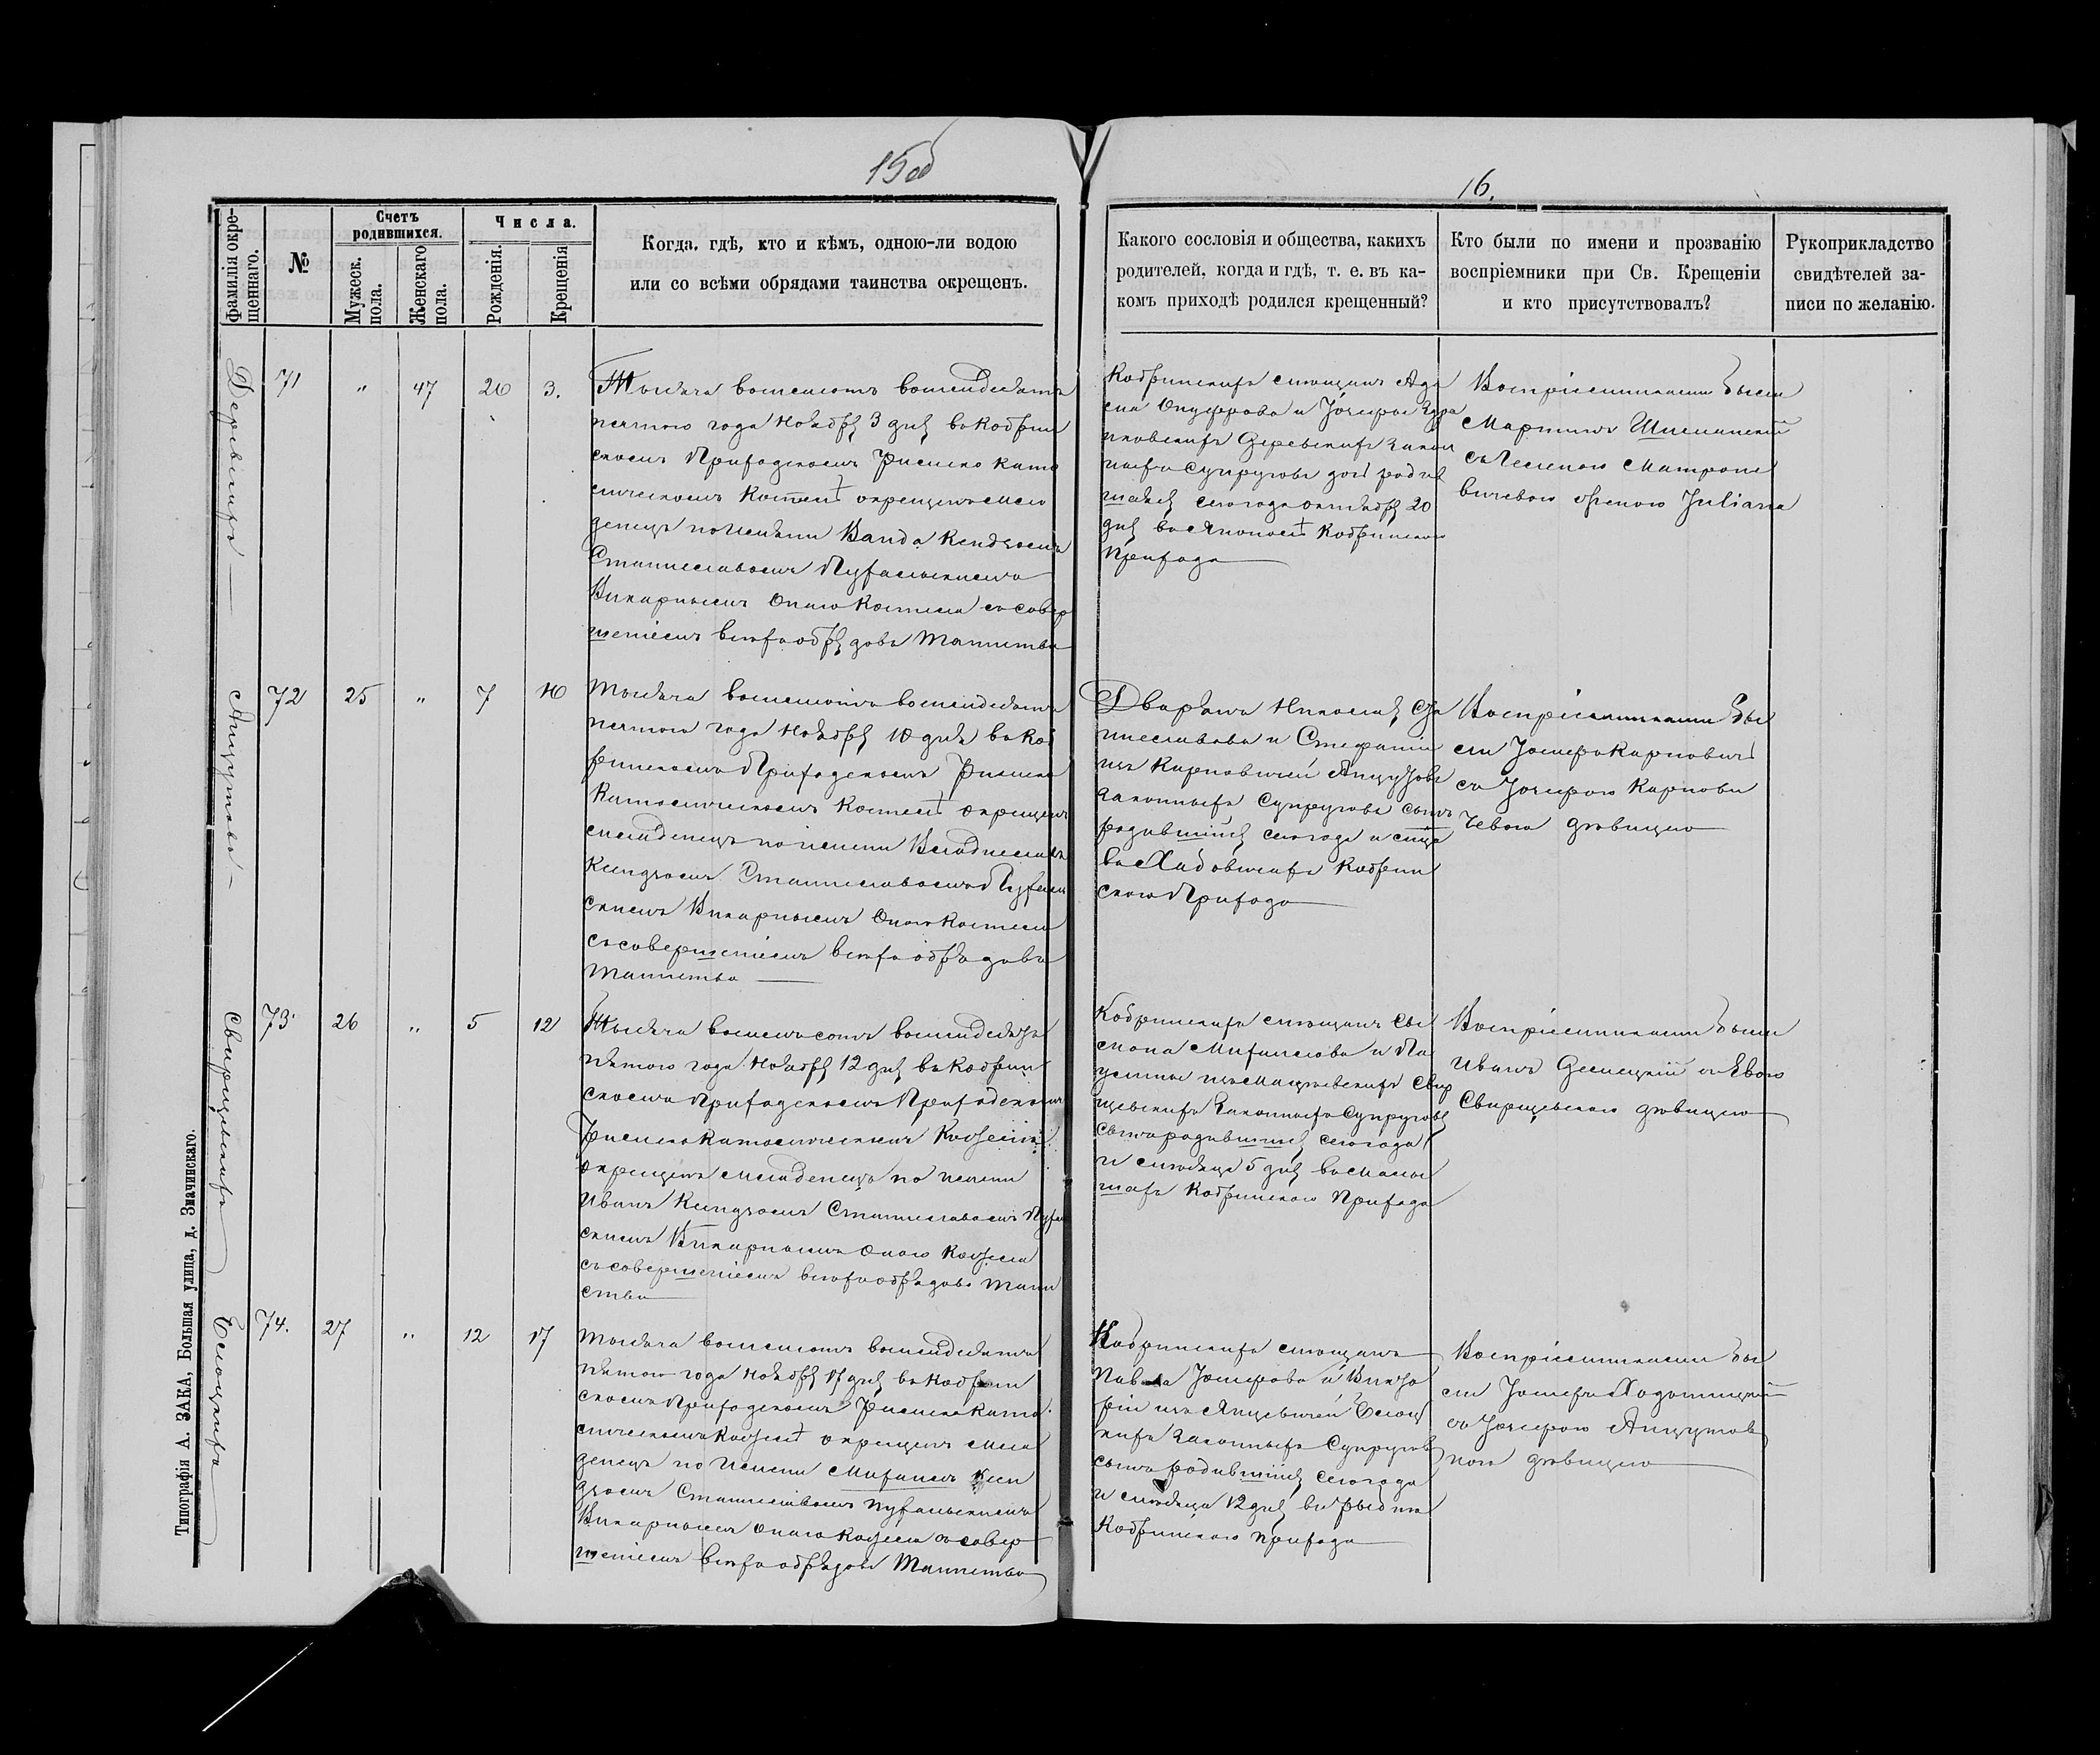 15об
16.
фамилія окре-
щеннаго.
№
Счетъ
родившихся.
Мужеск.
пола.
Женскаго
пола.
Числа.
Рожденія.
Крещенія
Когда, гдѣ, кто и кѣмъ, одною-ли водою
или со всѣми обрядами таинства окрещенъ.
Какого сословія и общества, какихъ
родителей, когда и гдѣ, т. е. въ ка-
комъ приходѣ родился крещенный?
Кто были по имени и прозванію
воспріемники при Св. Крещеніи
и кто присутствовалъ?
Рукоприкладство
свидѣтелей за-
писи по желанію.
71 " 47 20 3.
Тысяча восемсотъ восемдесятъ
пятого года Ноября 3 дня въ Кобрин
скомъ Приходскомъ Римско Като
лическомъ Костелѣ окрещенъ мла
денецъ по имени Wanda Ксендзомъ
Станиславомъ Пухальскимъ
Викарнымъ Онаго Костела съ совер
шеніемъ всѣхъ обрядовъ Таинства
Кобринскихъ мѣщанъ Ада
ма Онуфрова и Іозефы
законн
ныхъ Супруговъ дочь родив
шаяся сего года октября 20
дня Кобринскаго
Прихода
Воспріемниками были
Мартинъ
съ
вичевою женою Juliana
72 25 " 7 10
Тысяча восемсотъ восемдесятъ
пятого года Ноября 10 дня въ Коб
ринскомъ Приходскомъ Римско
Католическомъ Костелѣ окрещенъ
младенецъ по имени Владиславъ
Ксендзомъ Станиславомъ Пухаль
скимъ Викарнымъ Онаго Костела
съ совершеніемъ всѣхъ обрядовъ
Таинства
Дворянъ Николая Ста
ниславова и Стефаніи
изъ Карповичей Анцутовъ
законныхъ Супруговъ сынъ
родившійся сего года и мѣся
въ Кобрин
скаго Прихода
Воспріемниками бы
ли Іосифъ Карповичъ
съ Іозефою Карпови
чевою дѣвицею
Анцутовъ
73 26 " 5 12
Тысяча восемьсотъ восемдесятъ
пятого года Ноября 12 дня въ Кобрин
скомъ Приходскомъ Приходскомъ
Римско Католическомъ Костелѣ
окрещенъ младенецъ по имени
Иванъ Ксендзомъ Станиславомъ Пухал
скимъ Викарнымъ Онаго Костела
съ совершеніемъ всѣхъ обрядовъ Таин
ства
Кобринскихъ мѣщанъ Сы
мона Михайлова и Па
улины Свир
щевскихъ Законныхъ Супруговъ
сынъ родившійся сего года
и мѣсяца 5 дня
Кобринскаго Прихода
Воспріемниками были
Иванъ съ Евою
Свирщевскою дѣвицею
Свирщевскихъ
74. 27 " 12 17
Тысяча восемсотъ восемдесятъ
пятого года Ноября 17 дня въ Кобрин
скомъ Приходскомъ Римско Като
лическомъ Костелѣ окрещенъ мла
денецъ по имени Михаилъ Ксен
дзомъ Станиславомъ Пухальскимъ
Викарнымъ Онаго Костела съ совер
шеніемъ всѣхъ обрядовъ Таинства
Кобринскихъ мѣщанъ
Павла Іосифова и Викто
ріи изъ
законныхъ Супруговъ
сынъ родившійся сего года
и мѣсяца 12 дня въ
Кобринскаго Прихода
Воспріемниками бы
ли Іосифъ
съ Іозефою Анцутов
ною дѣвицею
Типографія А. ЗАКА, Большая улица, д. Значинскаго.